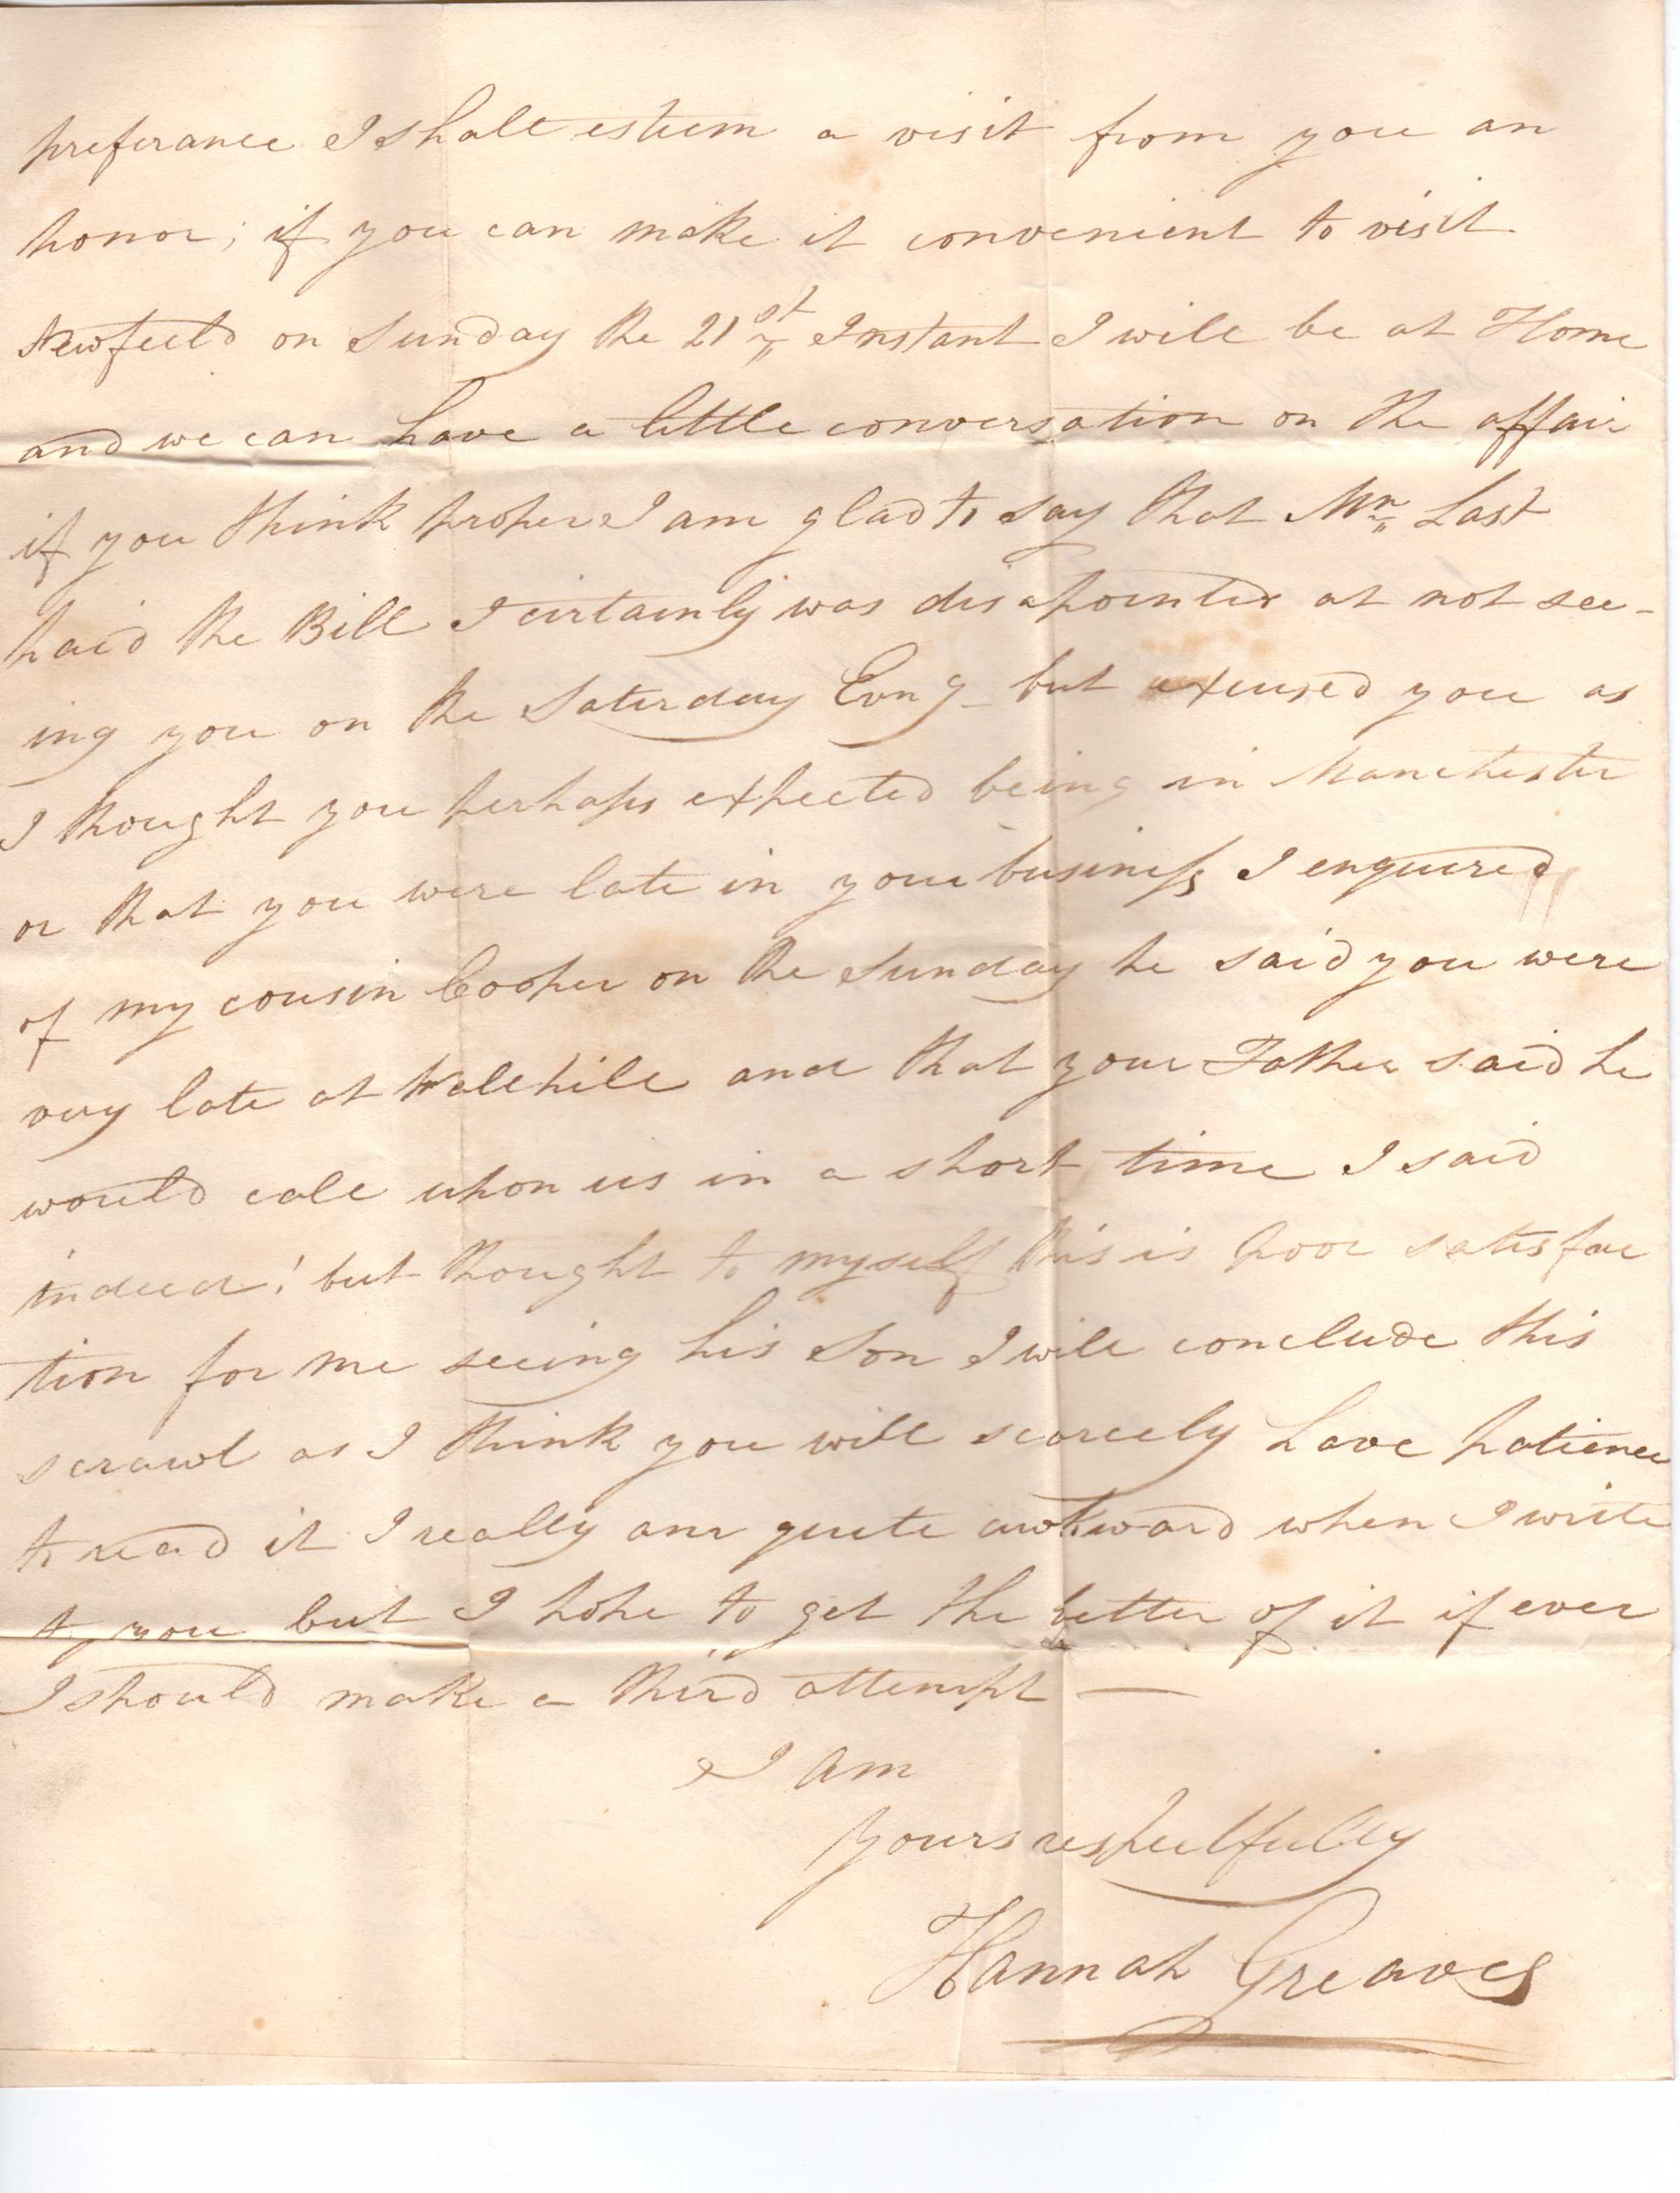 preferance I shall esteem a visit from you an
honor; if you can make it convenient to visit
Newfield on Sunday the 21st Instant I will be at Home
and we can have a little conversation on the affair
if you think proper I am glad to say that Mr. Last
paid the Bill I certainly was disapointed at not see-
ing you on the Saturday Evng- but excused you as
I thought you perhaps expected being in Manchester
or that you were late in your business I enquired
of my cousin Cooper on the Sunday he said you were
very late at Wallhill and that your Father said he
would call upon us in a short time I said
indeed! but thought to myself this is poor satisfac
tion for me seeing his Son I will conclude this
scrawl as I think you will scarcely have patience
to read it I really am quite awkward when I write
to you but I hope to get the better of it if ever
I should make a third attempt —
I am
Yours respectfully
Hannah Greaves